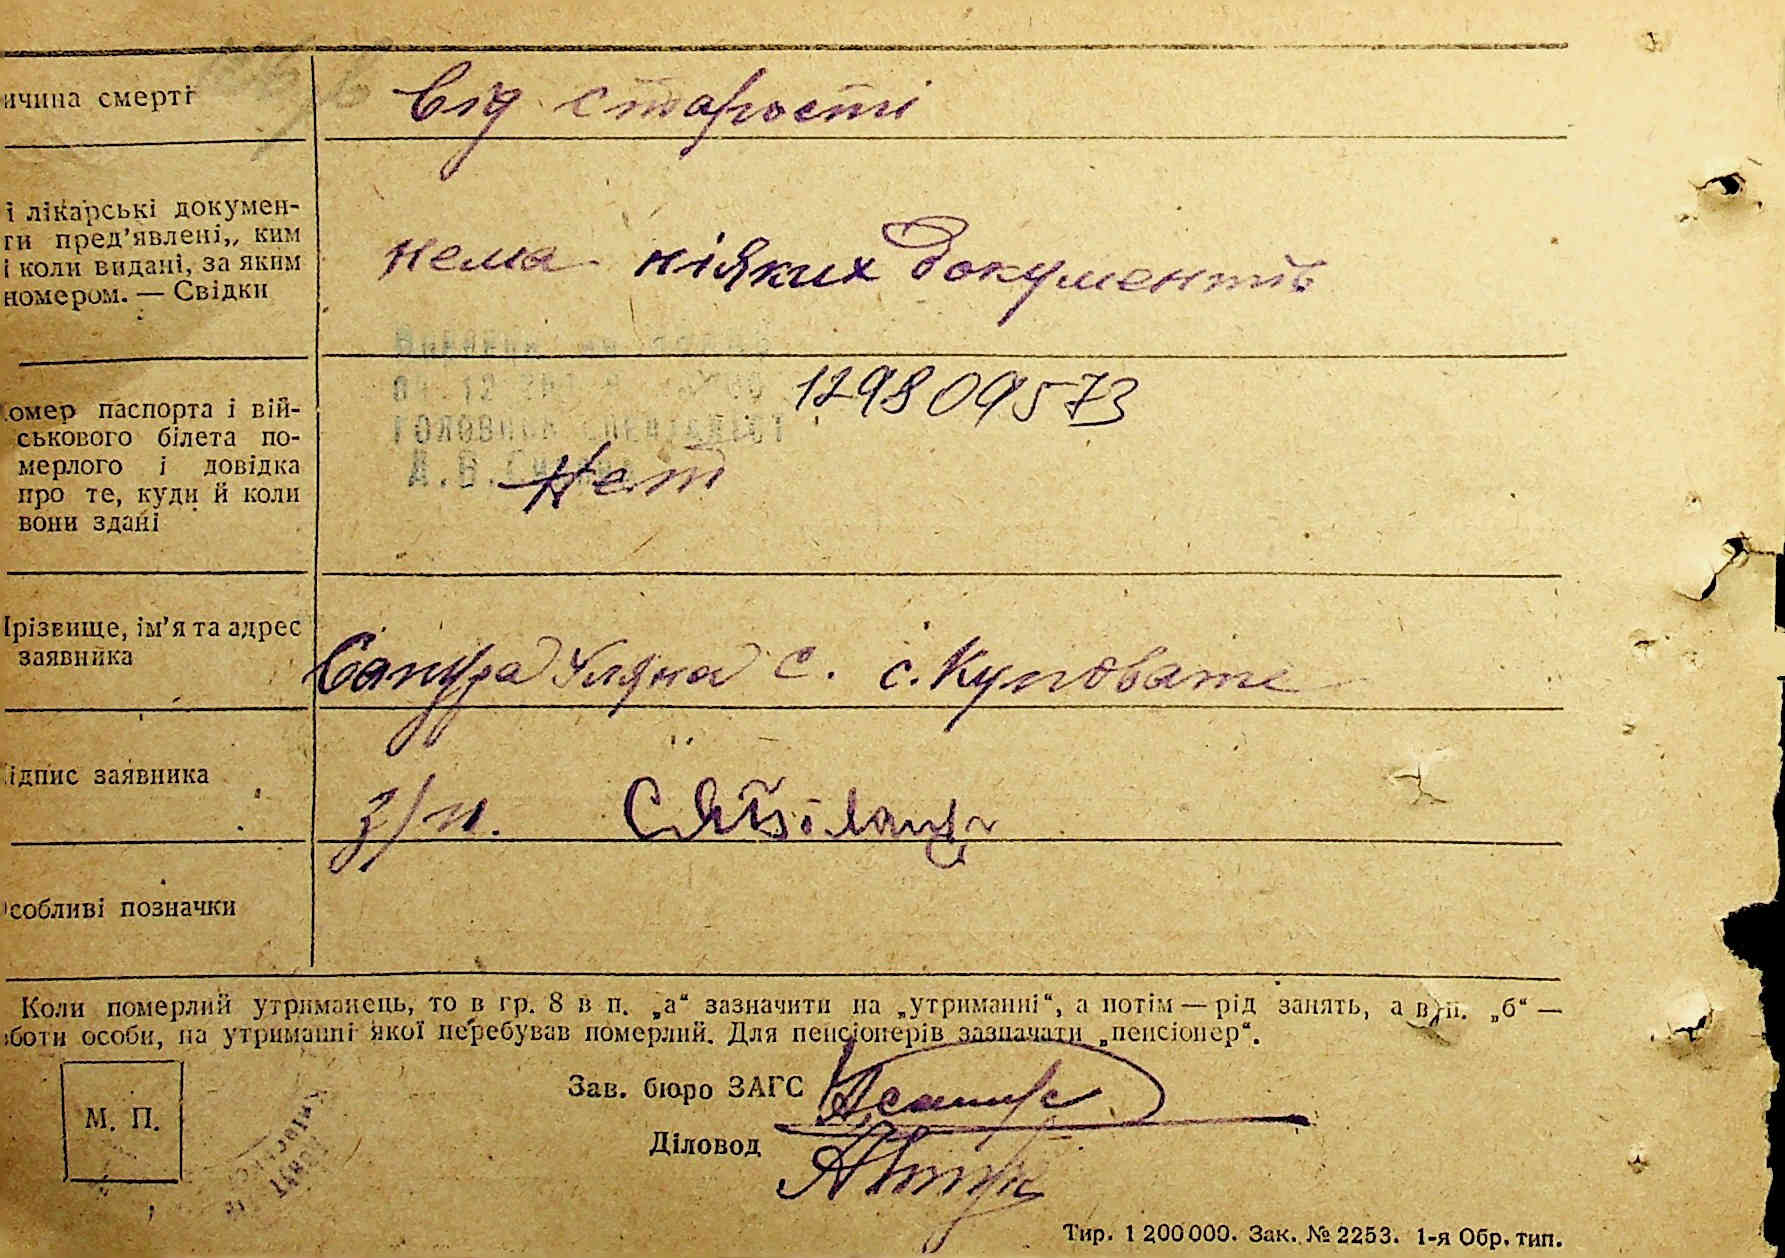 ичина смерті
від старості
і лікарські докумен-
ти пред'явлені,, ким
і коли видані, за яким
номером. — Свідки
нема ніяких документів
омер паспорта і вій-
ськового білета по-
мерлого і довідка
про те, куди й коли
вони здані
129809573
головний спеціаліст
Нет
Прізвище, ім'я та адрес
заявника
Сапура Уляна С. с. Куповате
ідпис заявника
з/п.
собливі позначки
Коли померлий утриманець, то в гр. 8 в п. „а“ зазначити на „утриманні“, а потім — рід занять, а в п. „б“ —
боти особи, на утриманні якої перебував померлий. Для пенсіонерів зазначати „пенсіонер“.
М. П.
Зав. бюро ЗАГС
Діловод
Тир. 1 200 000. Зак. № 2253. 1-я Обр. тип.